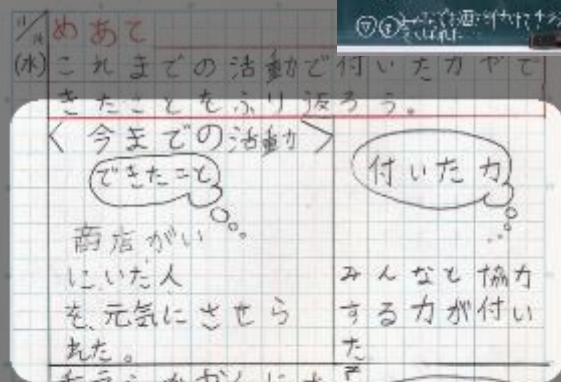 めあて
(水)
これまでの活動で付いた力やで
きたことをふり返ろう。
<今までの活動>
できたこと
商店がい
にいた人
を、元気にさせら
れた。
付いた力
みんなと協力
する力が付い
た